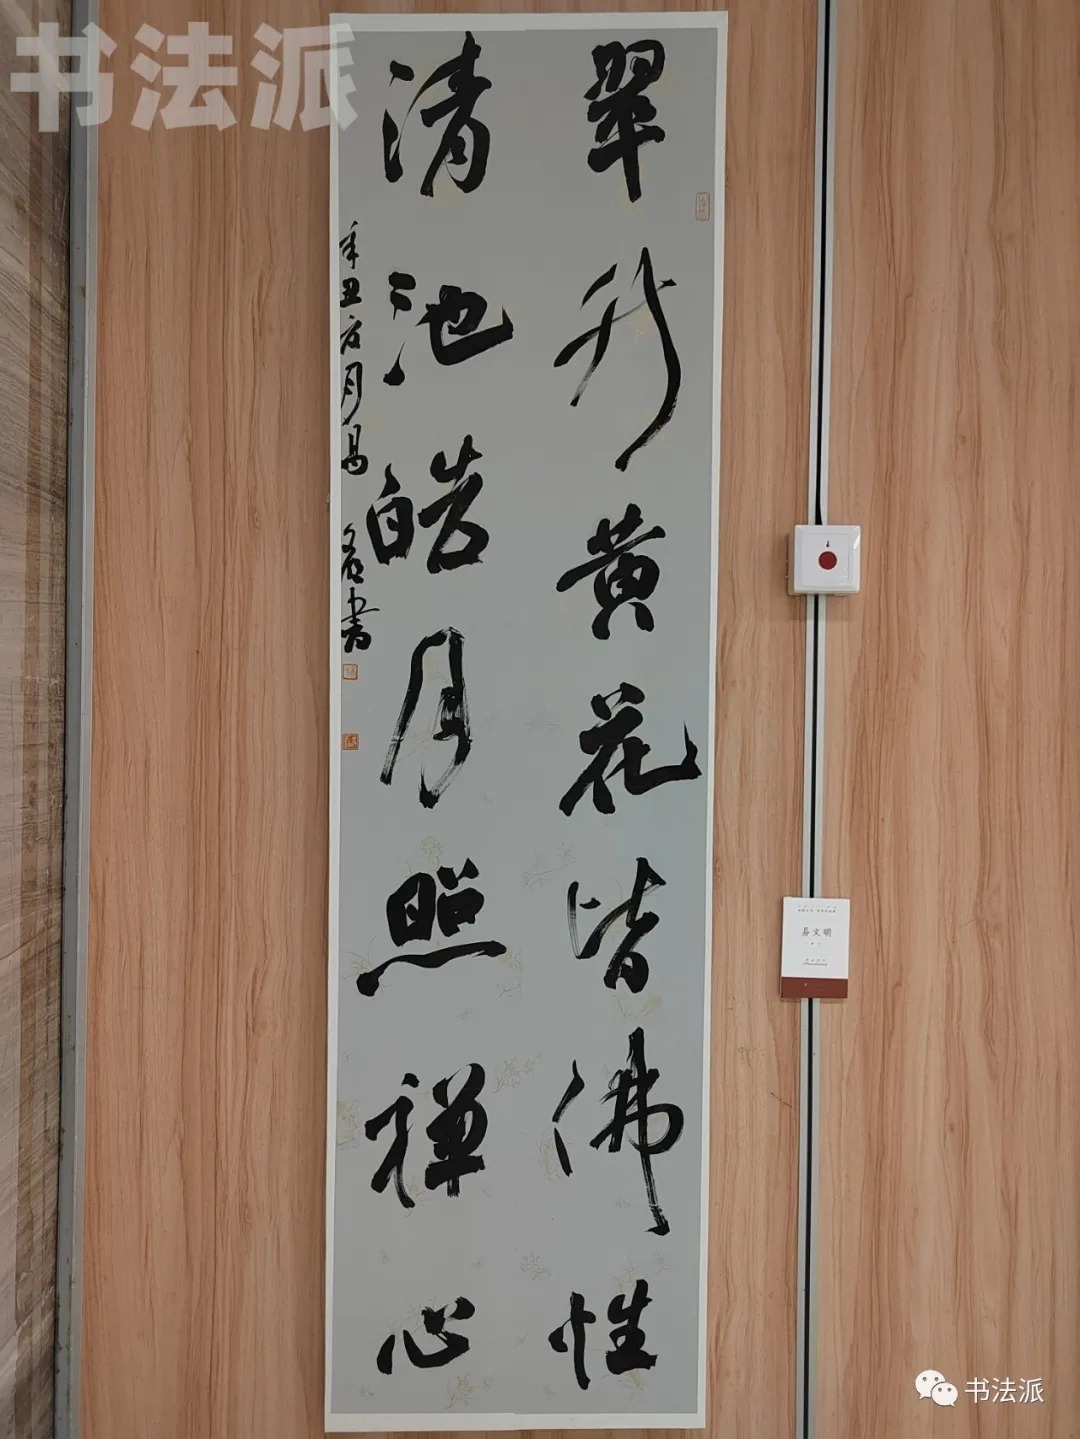 书法派
翠竹黄花皆佛性
清池皓月照禅心
辛丑
月易
书
易文明
书法派